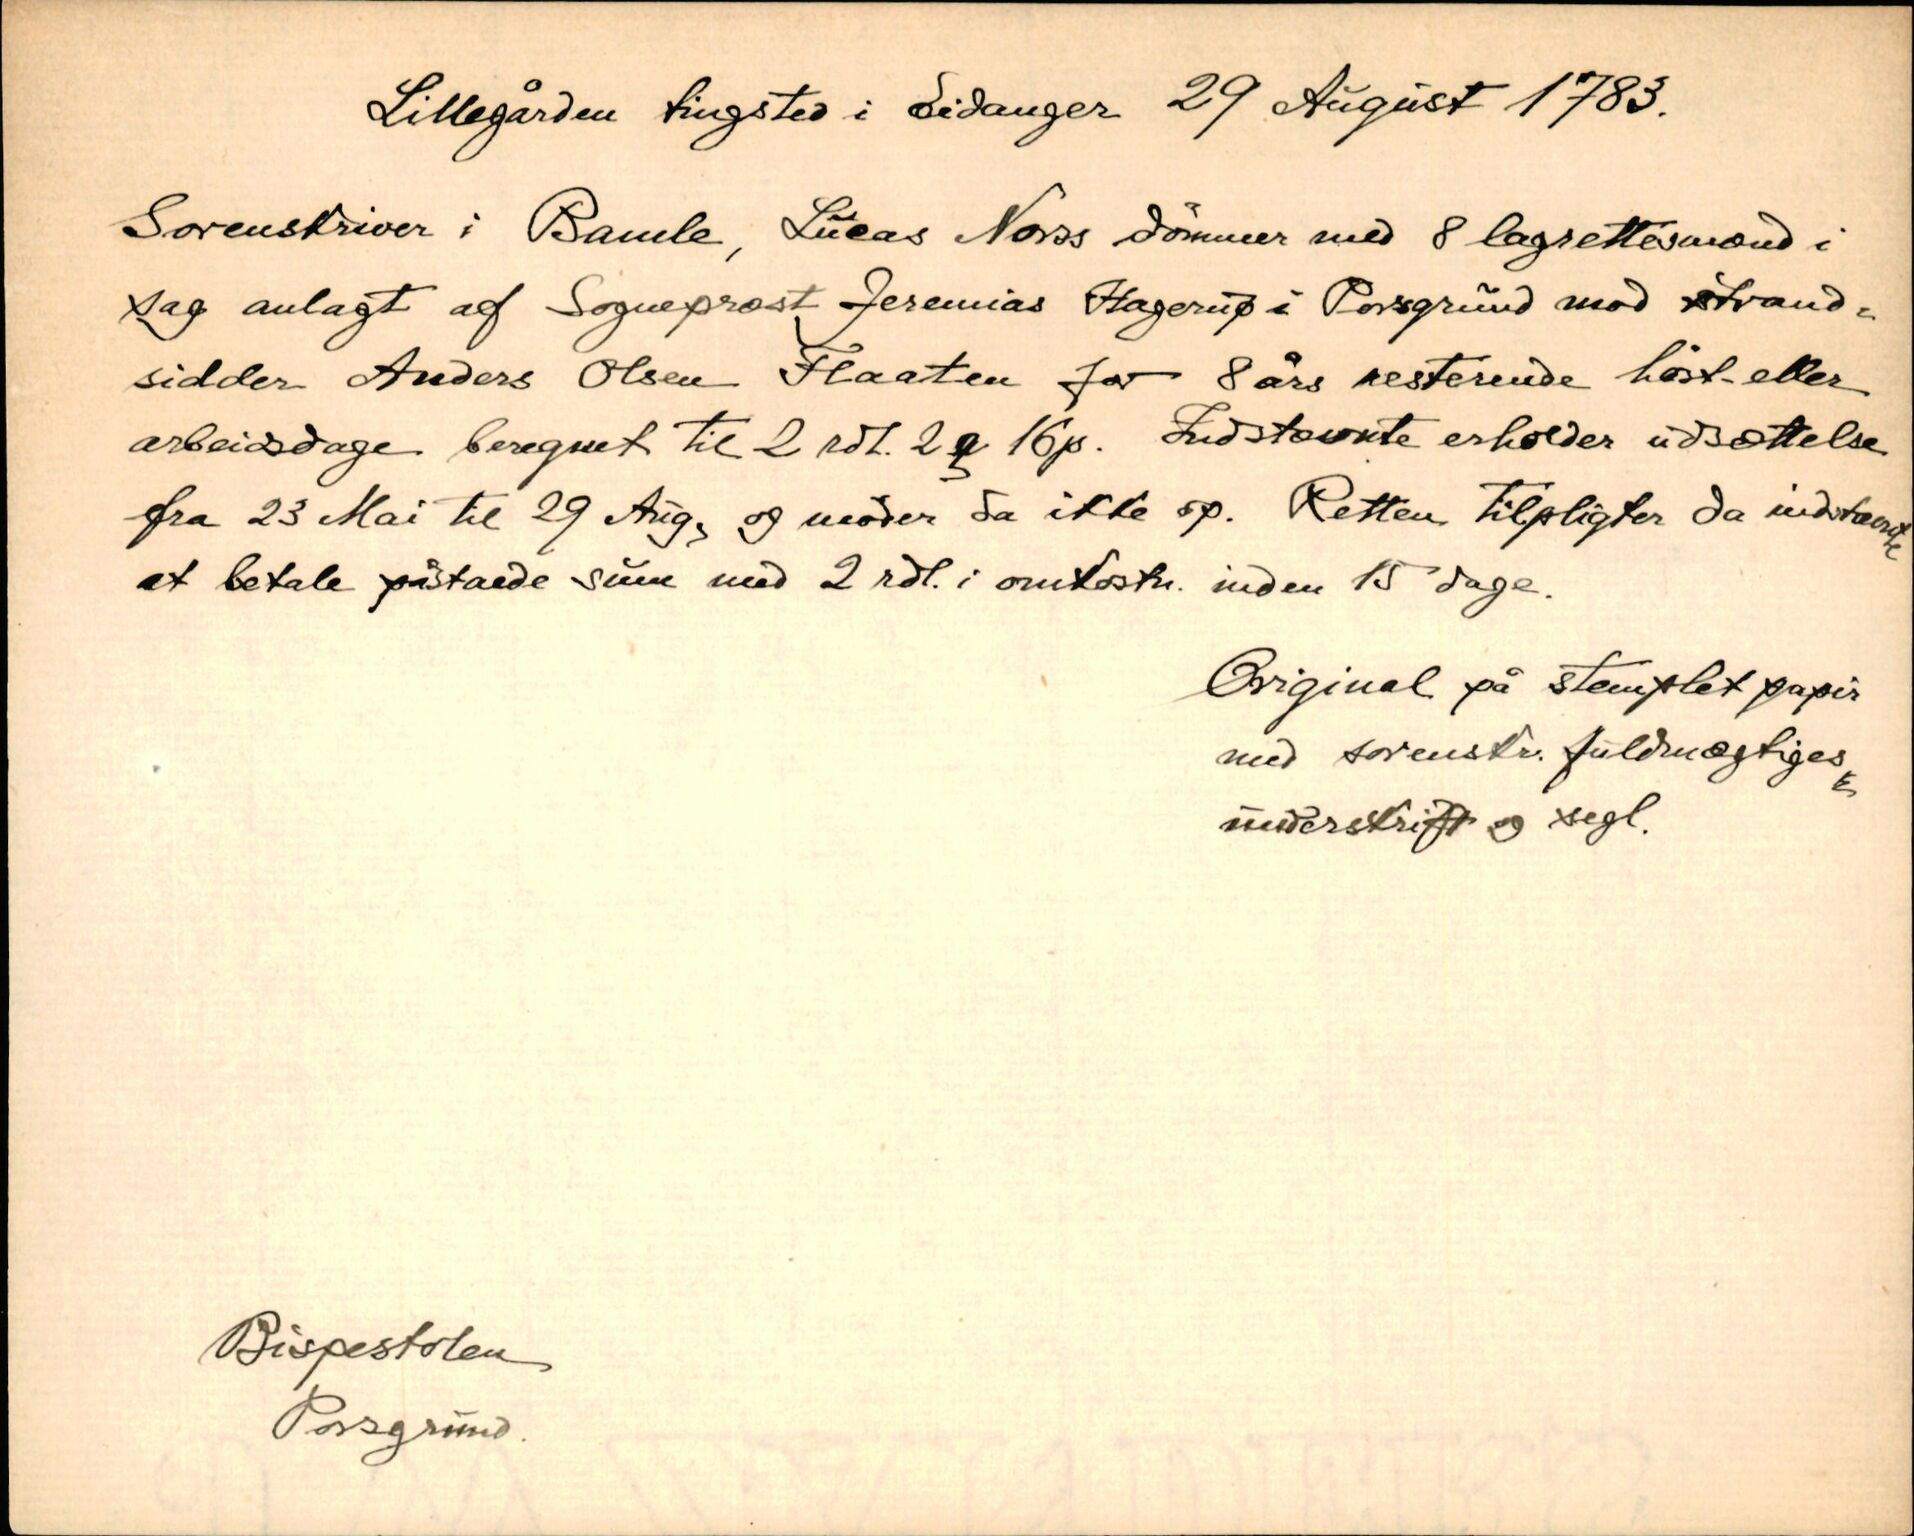 Lillegården tingsted i Eidanger 29 August 1783.
Sorenskriver i Bamle, Lucas Norss dömmer med 8 lagrettesmænd i
sag anlagt af Sognepræst Jeremias Hagerup i Porsgrund mod strand-
sidder Anders Olsen Flaaten for 8 års resterende höst- eller
arbeidsdage beregnet til 2 rdl. 2 16p. Indstævnte erholder udsættelse
fra 23 Mai til 29 Aug, og möder da ikke op. Retten tilpligter da indstævnte
at betale påstaede sum med 2 rdl. i omkostn. inden 15 dage.
Original på stemplet papir
med sorenskr. fuldmægtiges
underskrift og segl.
Bispestolen
Porsgrund.